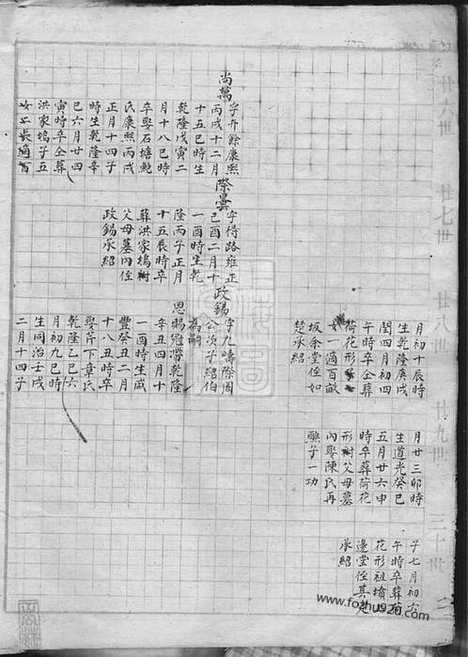 月初十辰時
生乾隆庚戌
閏四月初四
午時卒仝葬
荷花形
女一適百畝
坂余堂侄如
楚承紹
月廿三卯時
生道光癸巳
五月廿六申
時卒葬荷花
形樹父母墓
內娶陳氏再
醮子一功
子七月初
午時卒葬荷
花形祖墳
邊堂侄其
承紹
尚萬
字升餘康熙
丙戌十二月
十五巳時生
乾隆戊寅二
月十八巳時
卒娶石塘鮑
氏康熙丙戌
正月十四子
時生乾隆辛
巳六月廿四
寅時卒仝葬
洪家塢子五
女二長適
際曇
字得路雍正
己酉二月十
一酉時生乾
隆丙子正月
十五辰時卒
葬洪家塢樹
父母墓內侄
政錫承紹
政錫
字九疇際周
公次子紹伯
為嗣
恩賜冠帶乾隆
辛丑四月十
一酉時生咸
豐癸丑二月
十八丑時卒
娶芹下章氏
乾隆乙巳六
月初九巳時
生同治壬戌
二月十四子
廿六世
廿七世
廿八世
廿九世
三十世
www.foshu920.com